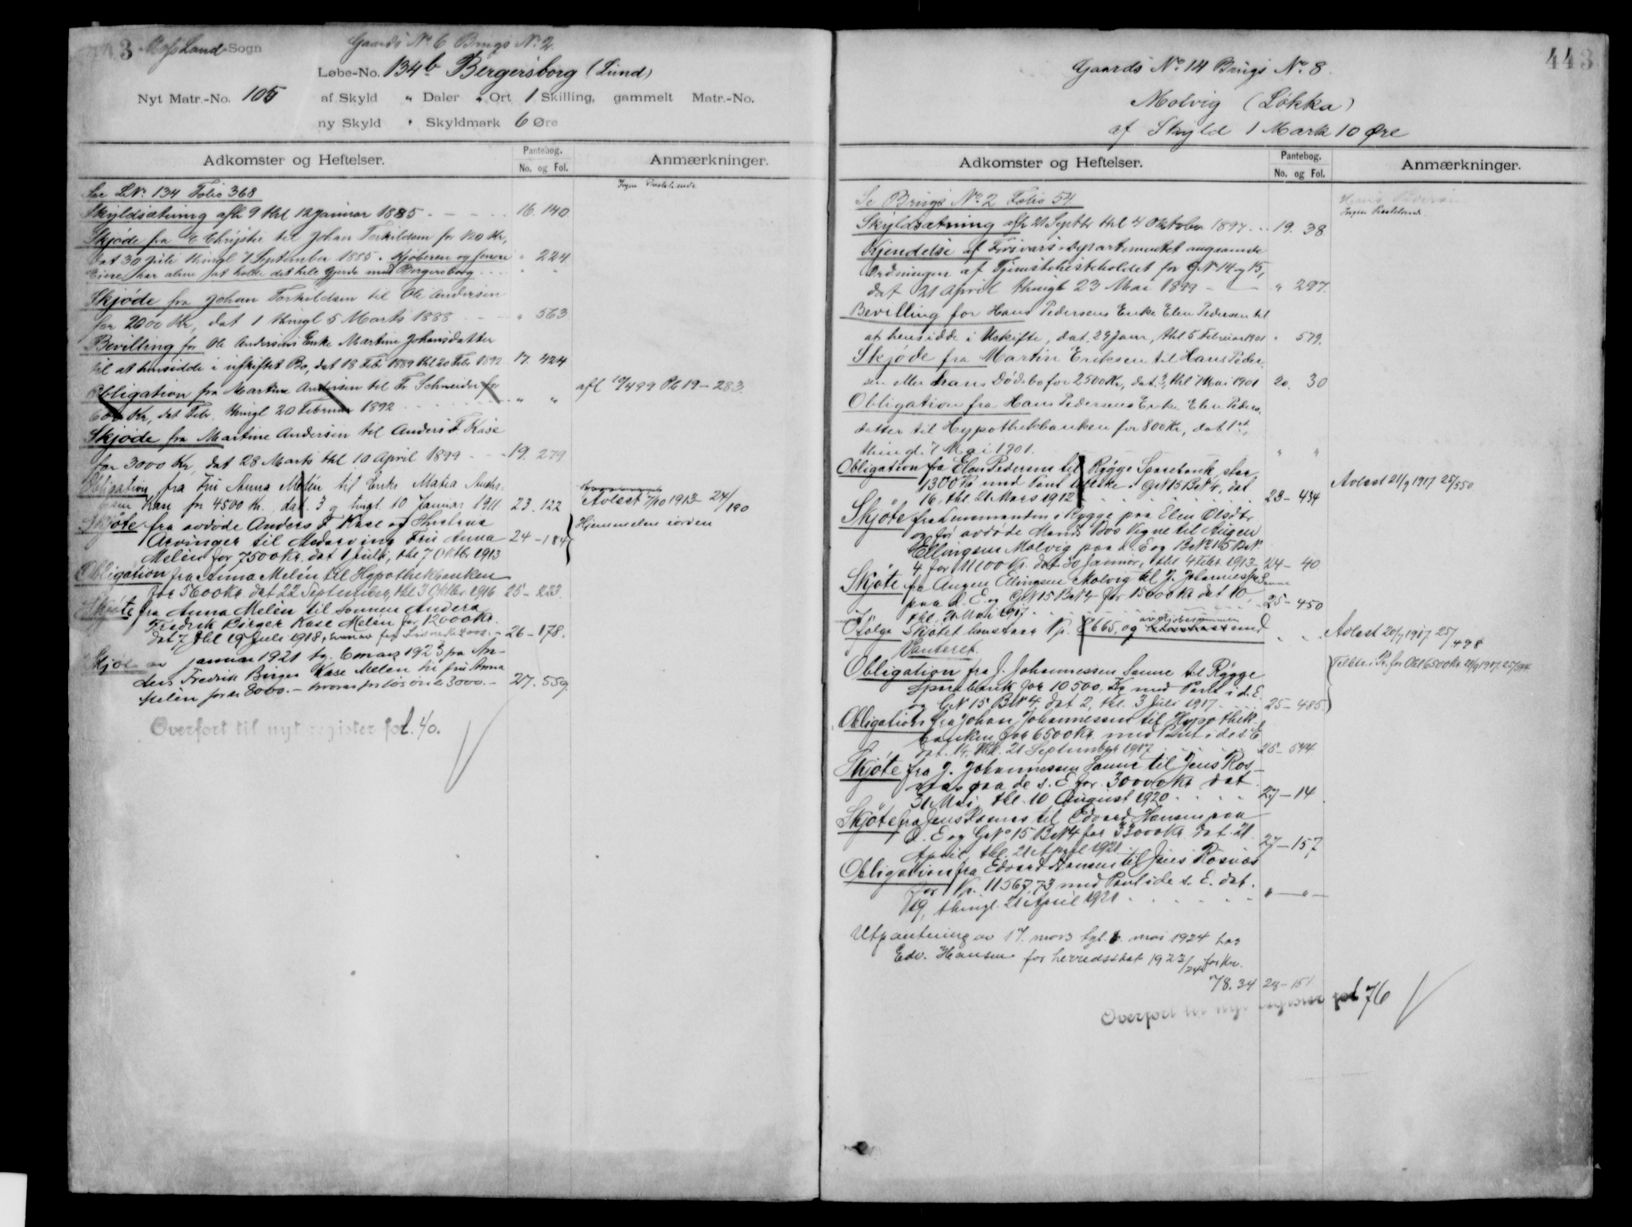 3 Moss Land Sogn
Gaards No 6 Brugs No 2
Løbe-No. 134b Bergersborg (Lund)
Nyt Matr.-No. 105 af Skyld " Daler " Ort 1 Skilling, gammelt Matr.-No.
ny Skyld " Skyldmark 6 Øre
Adkomster og Heftelser. Pantebog. No. og Fol. Anmærkninger.
Se LNo 134 Folio 368
Skyldsætning afh. 9 thl 12 Januar 1885 16. 140
Skjøde fra Christie til Johan Torkildsen for 120 Kr,
dat 30 Juli thingl 7 September 1885. Kjøberen og senere " 224
Eiere har alene at holde det hele Gjerde mod Bergersborg
Skjøde fra Johan Torkildsen til Ole Andersen
for 2000 Kr, dat 1 thingl 5 Marts 1888 " 563
Bevilling for Ole Andersens Enke Martine Johansdatter
til at hensidde i uskiftet Bo, dat 18 Feb 1889 thl 20 Feb 1892 17. 424
Obligation fra Martine Andersen til Fr Schneider for
600 Kr, dat Feb. thingl 20 Februar 1892 " " afl 499 Pb 19-283
Skjøde fra Martine Andersen til Anders F Kase
for 3000 Kr, dat 28 Marts thl 10 April 1899 19. 279
Obligation fra Fru Anna Melén til Enke Matia
Kase for 4500 Kr. dat 3 og tingl 10 Januar 1911 23. 122 Avlest 7/10 1913 24/190
Skjøte fra avdøde Anders F Kase og Hustrus Hjemmelen iorden
Arvinger til Medarving Fru Anna 24-184
Melén for 7500 Kr. dat 1 Juli, thl 7 Oktbr 1913
Obligation fra Anna Melén til Hypothekbanken
for 5600 Kr. dat 22 September, thl 3 Oktbr 1916 25-223.
Skjøte fra Anna Melén til Sønnen Anders
Fredrik Birger Kase Melén for 12000 Kr.
dat 7 thl 19 Juli 1918, 26-178.
Skjøte av januar 1921 tg. 6 mars 1923 fra An-
ders Fredrik Birger Kase Melén til fru Anna
Melén for kr 8000.- hvorav for løsøre 3000.- 27. 559.
Overført til nyt register fol. 40.
443
Gaards No 14 Brugs No 8.
Molvig (Løkka)
af Skyld 1 Mark 10 Øre
Adkomster og Heftelser. Pantebog. No. og Fol. Anmærkninger.
Se Brugs No 2 Folio 54
Skyldsætning afh 21 Septbr thl 4 Oktober 1897 19. 38
Kjendelse af Forsvarsdepartementet angaaende
Ordningen af for GNo 14 og 15,
dat 21 April thingl 23 Mai 1899 " 297
Bevilling for Hans Pedersens Enke Elen Pedersen til
at hensidde i Uskifte, dat. 29 Janr, thl 5 Februar 1901 " 579.
Skjøde fra Martin Eriksen til Hans Peder-
sen eller hans Dødsbo for 2500 Kr, dat 3, thl 7 Mai 1901 20. 30
Obligation fra Hans Pedersens Enke Elen Peders-
datter til Hypothekbanken for 800 Kr, dat 1st,
thingl. 7 Mai 1901. " "
Obligation fra Elen Pedersen til Rygge Sparebank stor
1300 Kr med Pant tillike i GNo 15 BNo 4, dat
16, thl 21 Mars 1912 23-434 Avlest 21/9 1917 25/550
Skjøte fra Lensmanden i Rygge paa Elen Olsdtr
og for avdøde Mands Bos Vegne til August
Ellingsen Molvig paa d. E og GNo 15 BNo
4 for 11100 Kr. dat 30 Januar, thl 4 Febr 1913 24-40
Skjøte fra August Ellingsen Molvig til J. Johannessen Sanne
paa d. E og GNo 15 BNo 4 for 15000 Kr dat 10
thl. 21 Mai 1917 25-450
Ifølge Skjøtet
Panteret. Avlest 20/9 1917 25/498
Obligation fra J. Johannessen Sanne til Rygge
Sparebank for 10500 Kr med Pant i d. E
og GNo 15 BNo 4, dat 2, thl. 3 Juli 1917 25-485
Obligation fra Johan Johannessen til Hypothek-
banken for 6500 Kr. med Pant i d s E
dat. 14, thl. 21 September 1917 25-544
Skjøte fra J. Johannessen Sanne til Jens Ros-
næs paa de s. E for 30000 Kr dat
31 Mai, thl. 10 August 1920 27-14.
Skjøte fra Jens Rosnæs til Edvard Hansen paa
d. E og GNo 15 BNo 4 for 33000 Kr dat 21
April thl 21 April 1921 27-157
Obligation fra Edvard Hansen til Jens Rosnæs
for Kr. 11567,73 med Pant i de s. E. dat.
19, thingl. 21 April 1921 "-"-
Utpantning av 17. mars tgl. 6. mai 1924 hos
Edv. Hansen for herredsskat 1923/24 for Kr.
78.34 28-151
Overført til nyt register fol 76